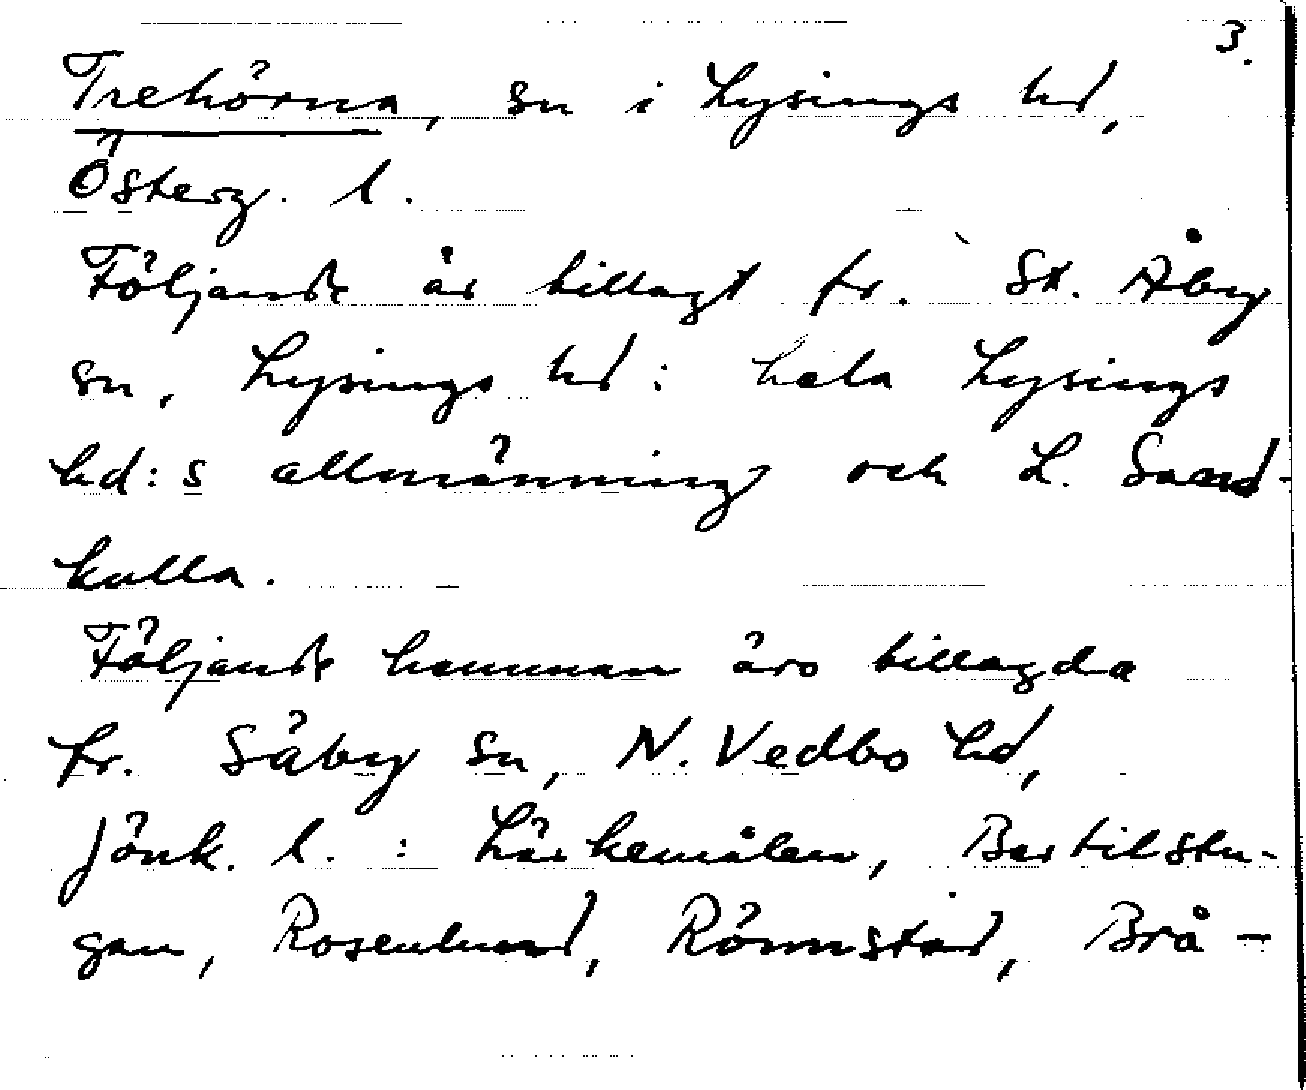 3.
Trehörna, sn i Lysings hd,
Österg. l.
Följande är tillagt fr. St. Åby
sn, Lysings hd: hela Lysings
hd:s allmänning och L. Sand-
kulla.
Följande hemman äro tillagda
fr. Säby sn, N. Vedbo hd,
Jönk. l. : Lärkemålen, Bertilstu-
gan, Rosenlund, Rönnstad, Brå-